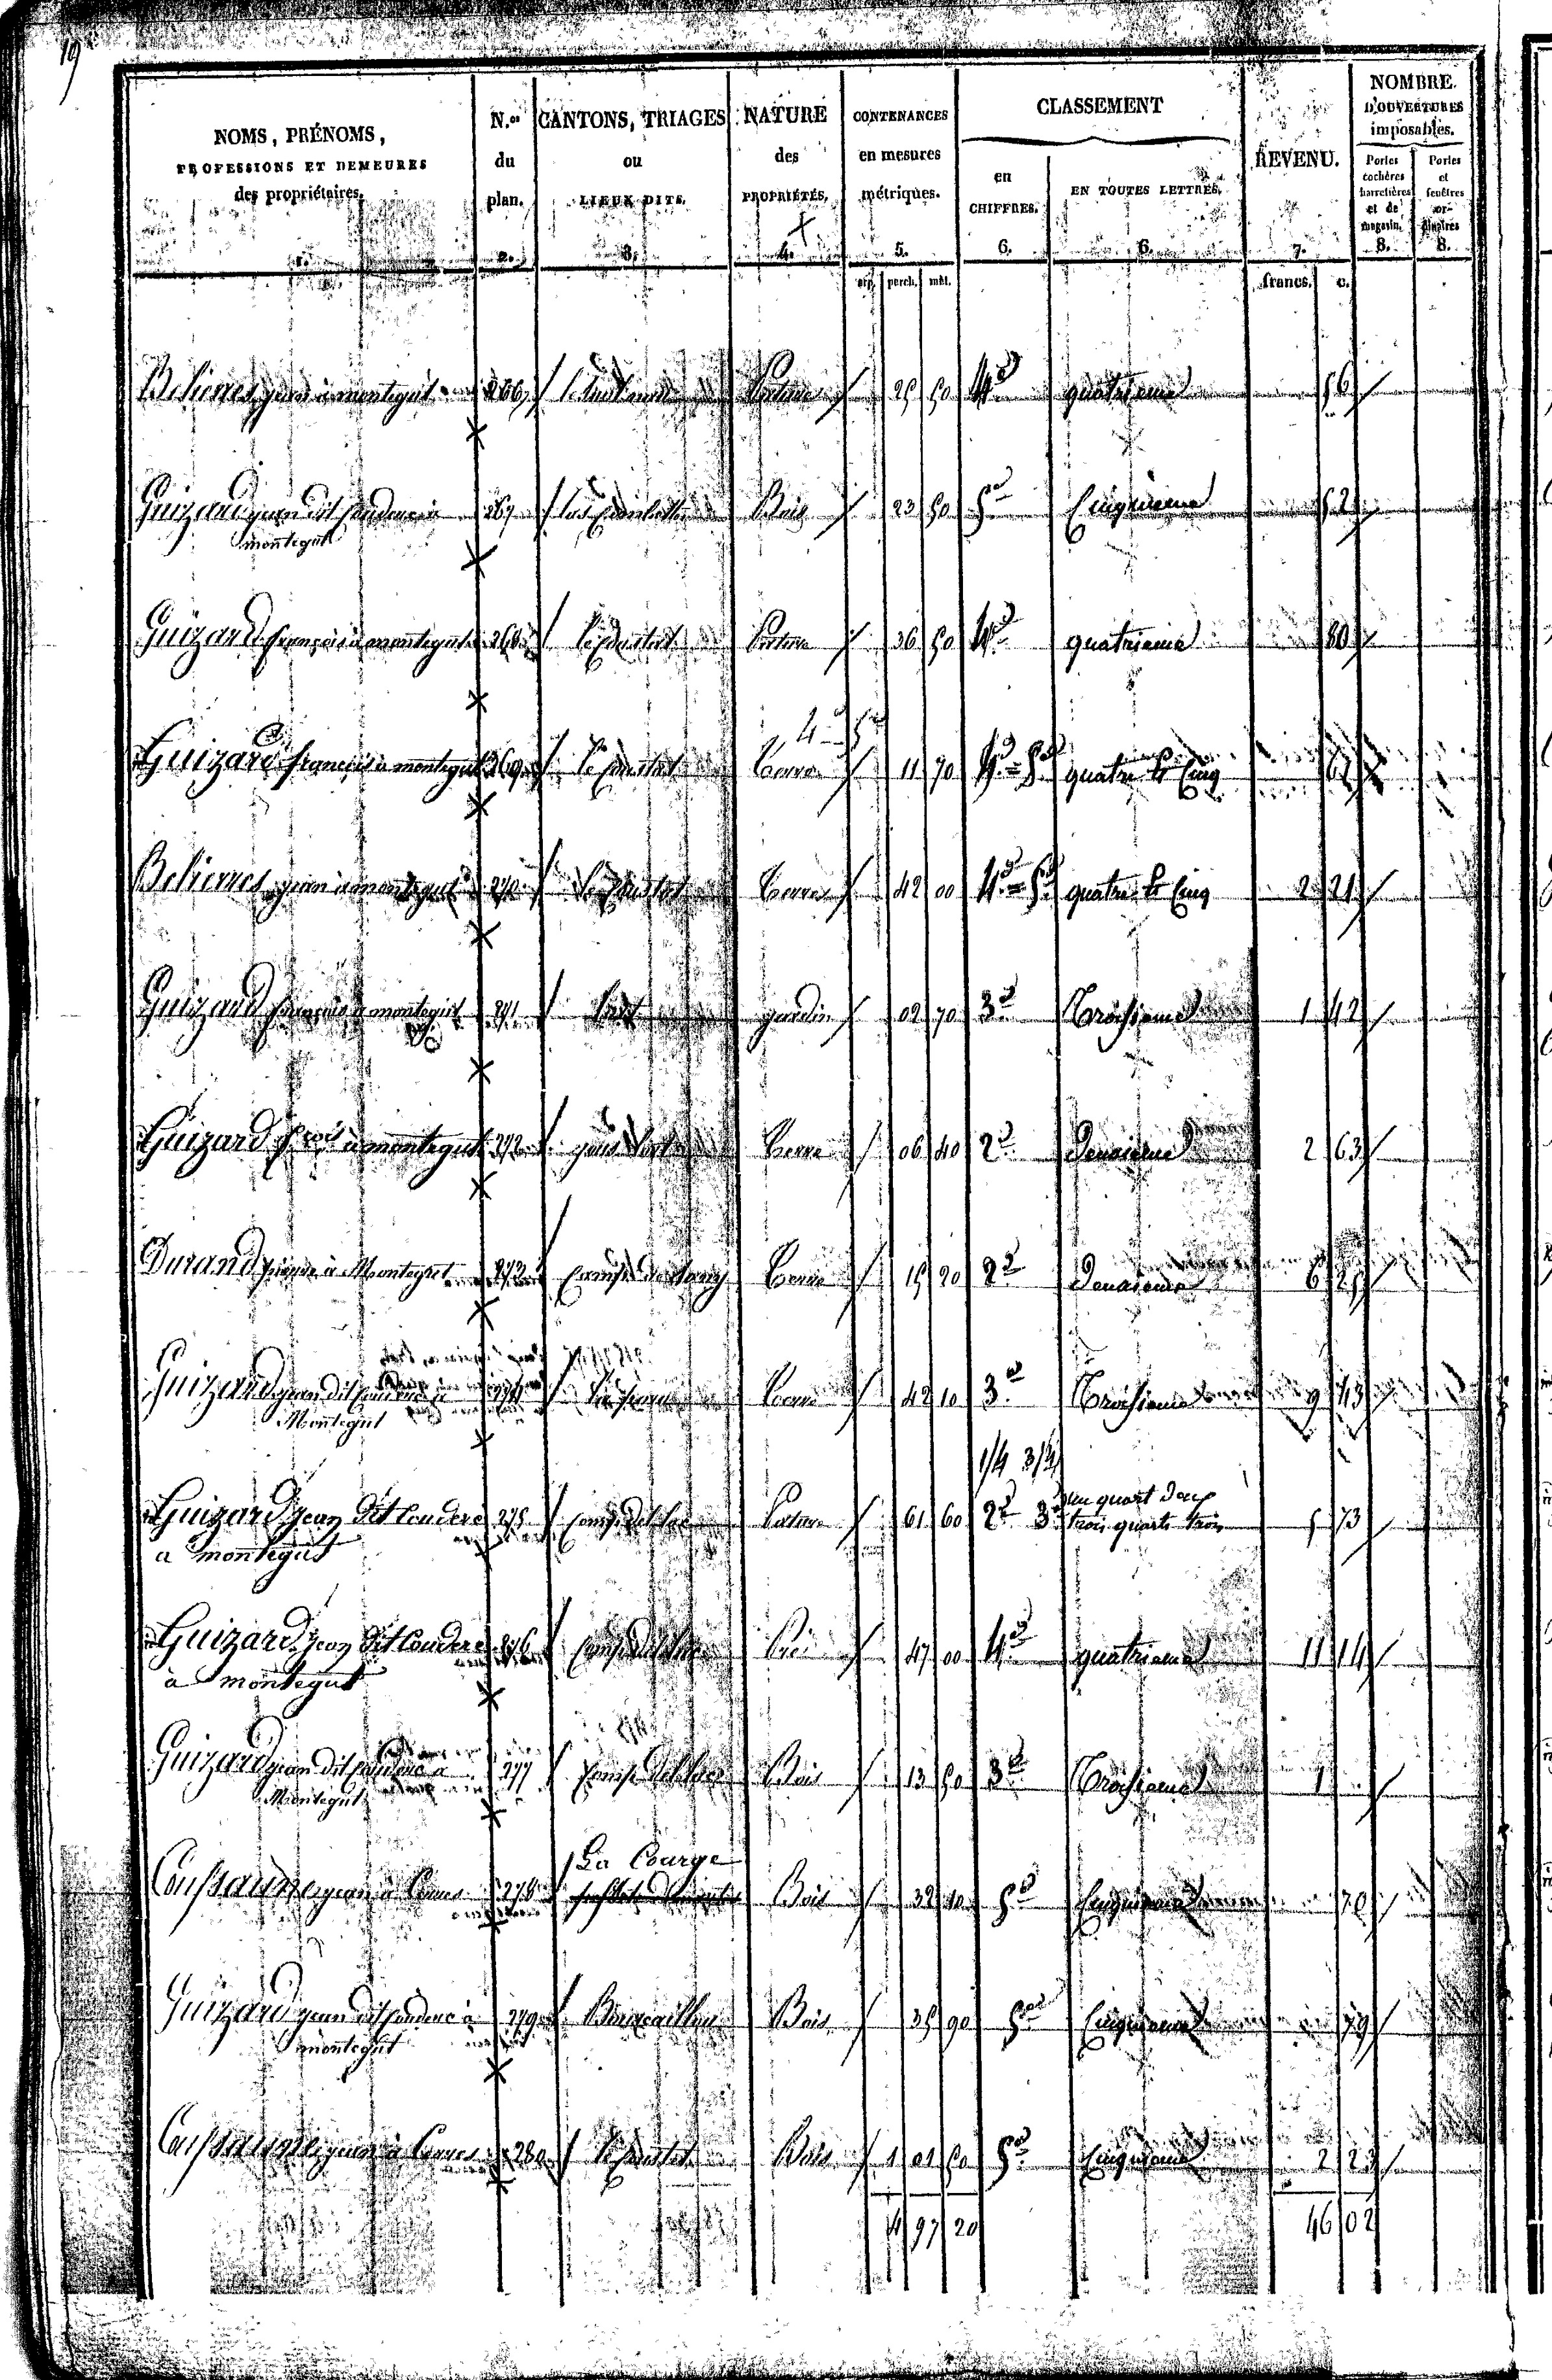 19
NOMS, PRÉNOMS, PROFESSIONS ET DEMEURES des propriétaires. 1.
N.os du plan. 2.
CANTONS, TRIAGES ou LIEUX DITS. 3.
NATURE des PROPRIÉTÉS. 4.
CONTENANCES en mesures métriques. 5.
CLASSEMENT
en CHIFFRES. 6.
EN TOUTES LETTRES. 6.
REVENU. 7.
NOMBRE D'OUVERTURES imposables.
Portes cochères charretières et de magasin. 8.
Portes et fenêtres ordinaires 8.
arp. perch. mèt. francs. c.
jean à montegut 266 Pature 25 50 4e quatrieme 56
Guizard jean dit Couderc à 267 Bois 23 50 5e Cinquieme 52
montegut
Guizard françois à montegut 268 le Coustat Pature 36 50 4e quatrieme 80
4e 5e
Guizard françois à montegut 269 le Coustat terre 11 70 4e = 5e quatre & Cinq
jean à montegut 270 le Coustat terre 42 00 4e = 5e quatre & Cinq 2 21
Guizard françois à montegut 271 jardin 02 70 3e Troisieme 1 42
Guizard fcois à montegut 272 terre 06 40 2e Deuxieme 2 63
Durand pierre à Montegut 273 terre 15 20 2e Deuxieme 6 25
Guizard jean dit Couderc à 274 terre 42 10 3e Troisieme 9 43
Montegut
1/4 3/4
un quart deux
Guizard jean dit Couderc 275 Camp del lac Pature 61 60 2e 3e trois quarts trois 5 73
a montegut
Guizard jean dit Couderc 276 Camp del lac Pré 47 00 4e quatrieme 11 14
à montegut
Guizard jean dit Couderc à 277 Camp del lac Bois 13 50 3e Troisieme 1
Montegut
La Courge
jean à 278 Bois 32 10 5e Cinquieme 70
Guizard jean dit Couderc à 279 Bois 35 90 5e Cinquieme 79
montegut
jean à 280 le Coustat Bois 1 01 50 5e Cinquieme 2 23
4 97 20 46 02